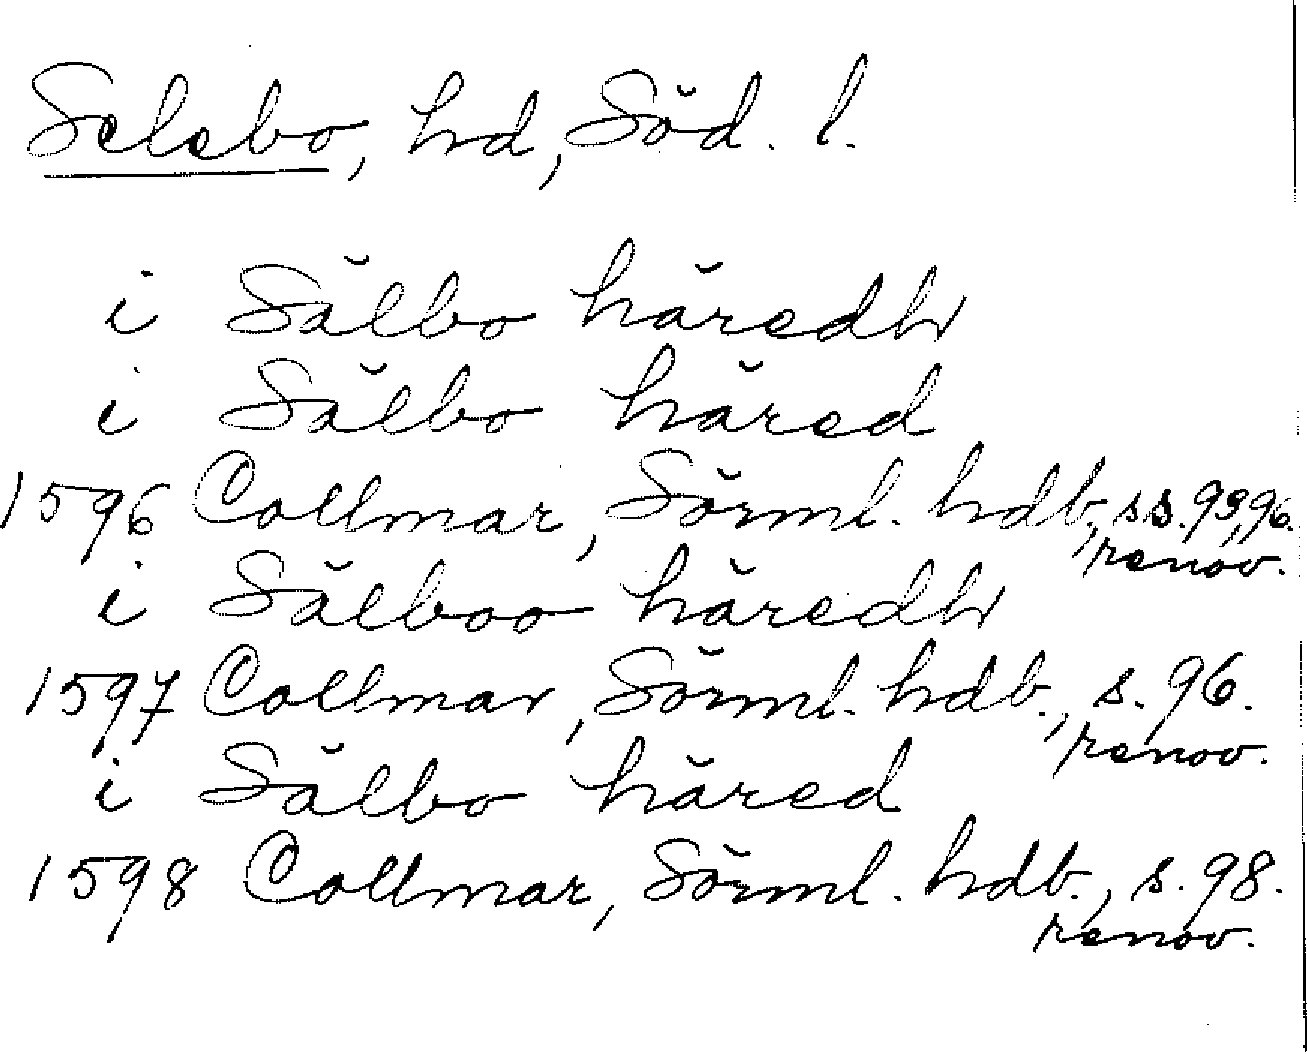 Selebo, hd, Söd. l.
i Sälbo häredh
i Sälbo häred
1596 Collmar, Sörml. hdb, ss. 93, 96.
renov.
i Sälboo häredh
1597 Collmar, Sörml. hdb., s. 96.
renov.
i Sälbo häred
1598 Collmar, Sörml. hdb., s. 98.
renov.